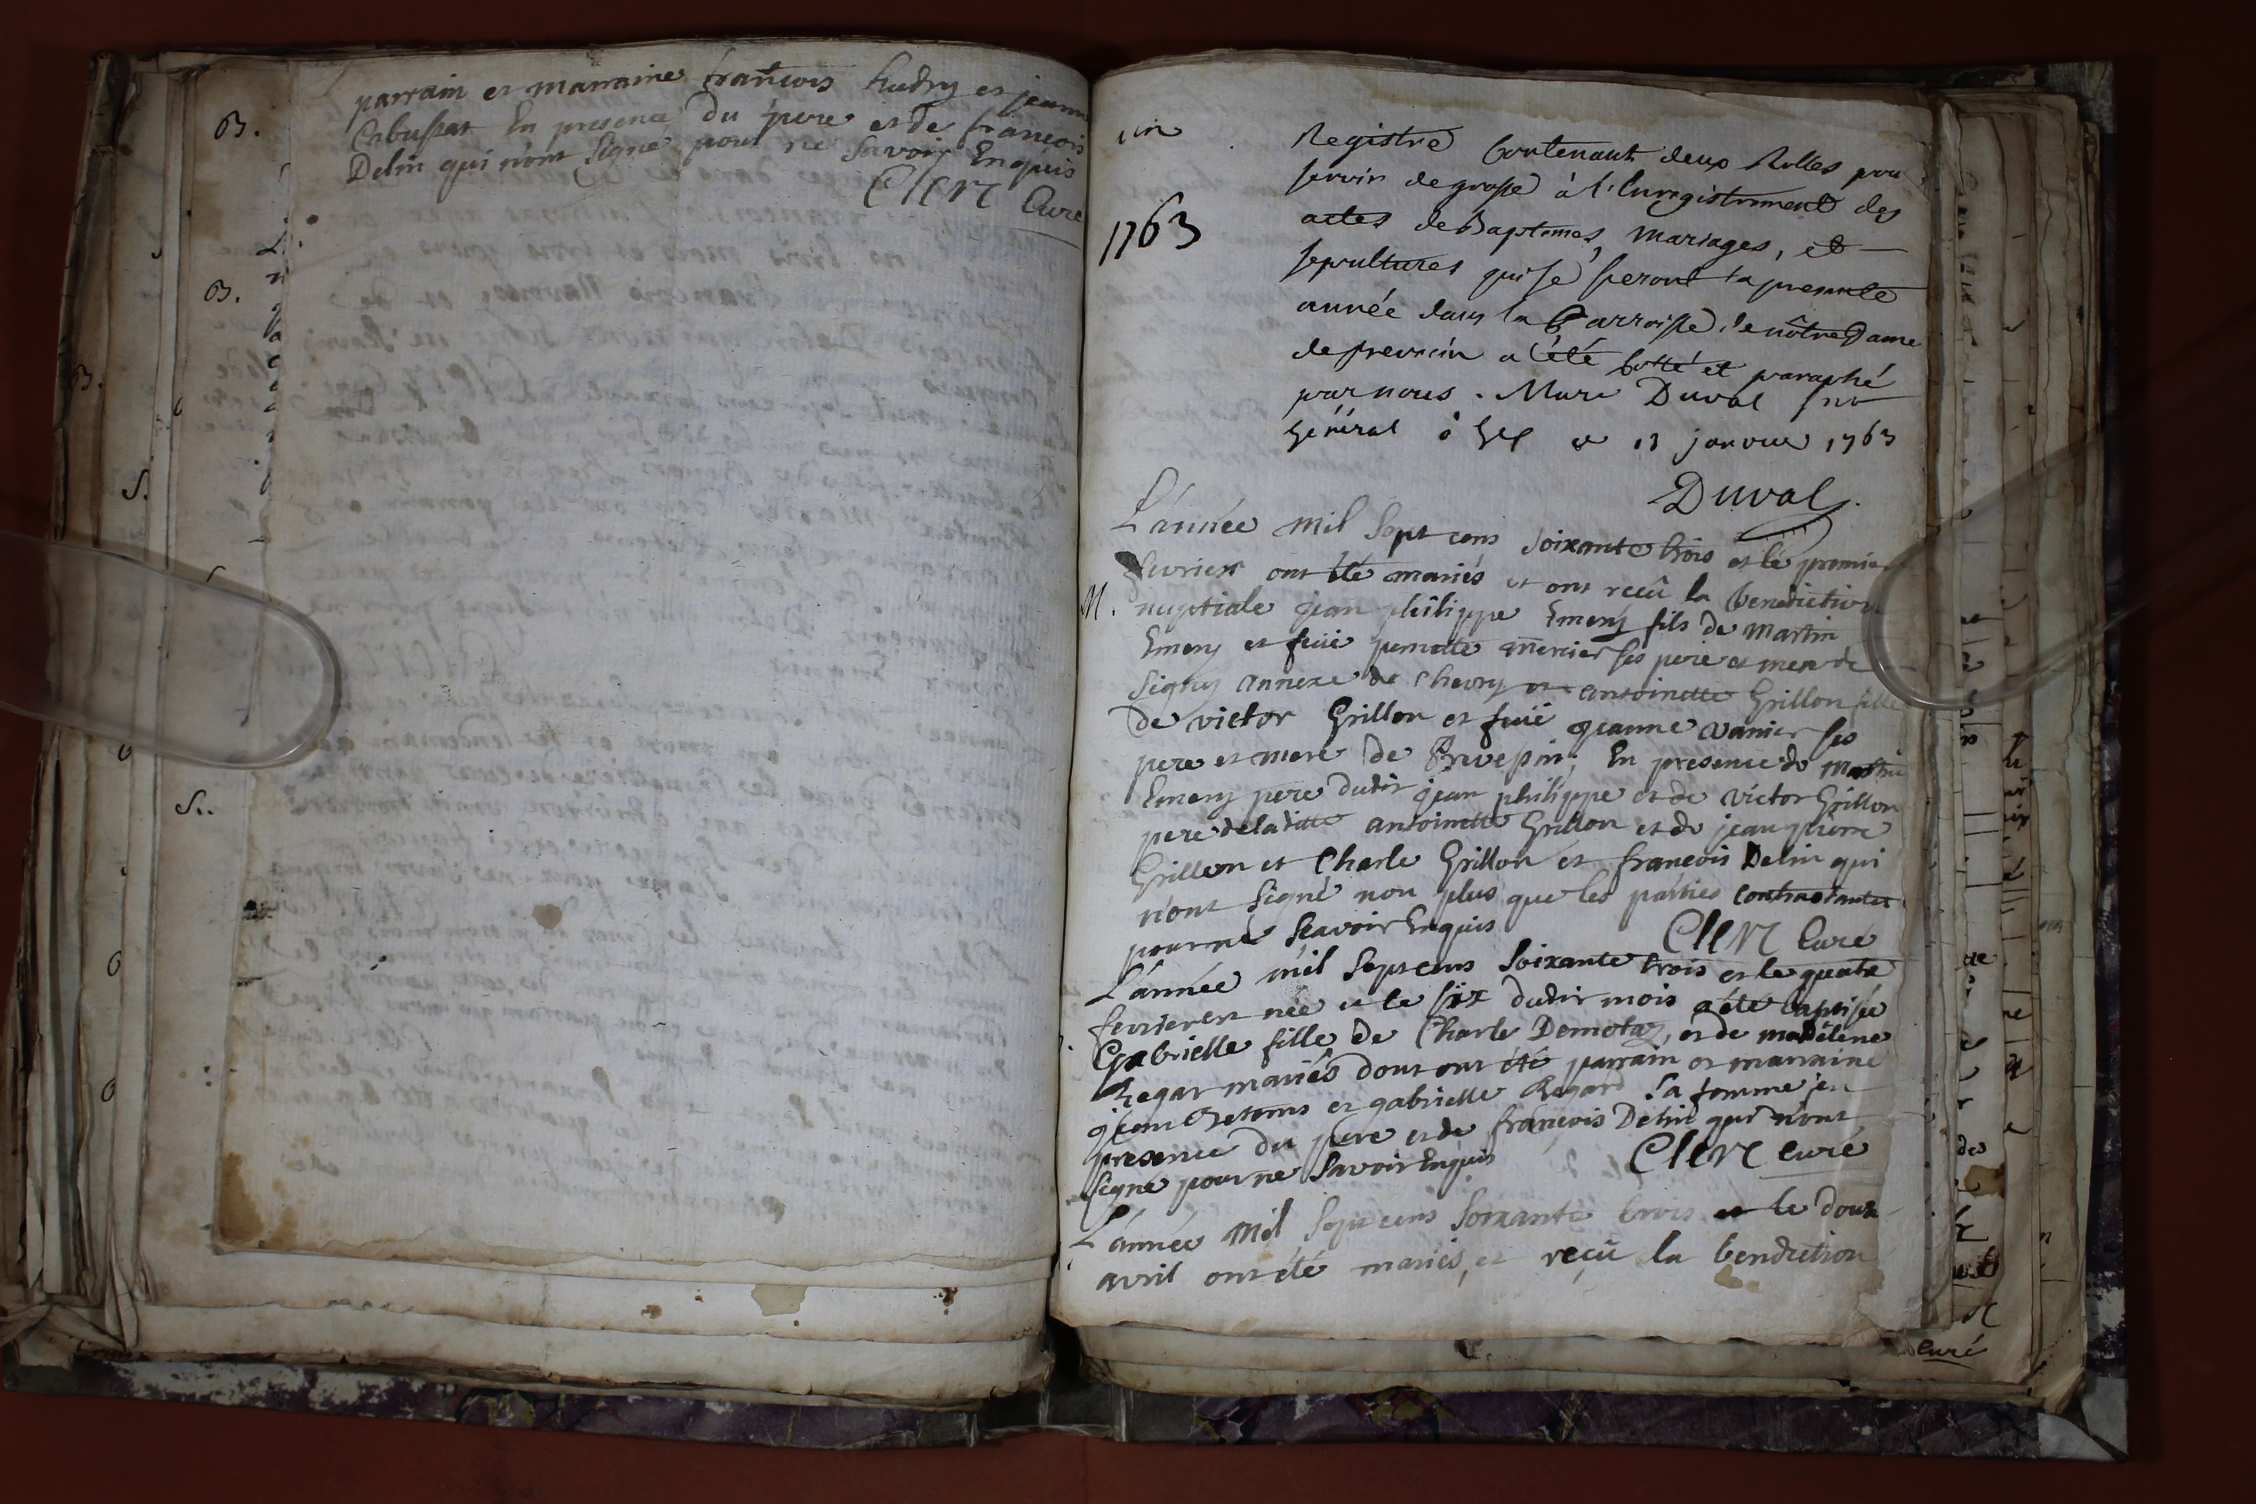 parrain et marraine françois hudry et jeanne
Cabussat En presence du pere et de françois
Delin qui n'ont Signé pour ne Savoir Enquis
Clerc Curé
B.
B.
B.
S.
S.
1763
Registre Contenant deux Rolles pour
servir de grosse à l'Enregistrement des
actes de Baptemes, Mariages, et
sepultures qui se feront la presente
année dans la Parroisse de nôtre Dame
de prevessin a été Cotté et paraphé
par nous. Marc Duval
Général à Gex ce 13 janvier 1763
Duval
L'année mil Sept cens Soixante trois et le premier
fevrier ont été mariés et ont reçû la benediction
M. nuptiale jean philippe Emery fils de Martin
Emery et feüe pernette mercier ses pere et mere de
Segny annexe de Chevry et antoinette Grillon fille
de victor Grillon et feüe jeanne vanier ses
pere et mere de Prevessin; En presence de Martin
Emery pere dudit jean philippe et de victor Grillon
pere de la ditte antoinette Grillon et de jean pierre
Grillon et Charle Grillon et françois Delin qui
n'ont Signé non plus que les parties contractantes
pour ne Scavoir Enquis Clerc Curé
L'année mil Sept cens Soixante trois et le quatre
fevrier est née et le six dudit mois a été baptisée
Gabrielle fille de Charle Demotaz, et de madelene
Regar mariés dont ont été parrain et marraine
jean et gabrielle Regard Sa femme en
presence du pere et de françois Delin qui n'ont
Signé pour ne Savoir Enquis Clerc curé
L'année Mil Sept cens Soixante trois et le douze
avril ont été mariés, et reçû la bendiction
curé